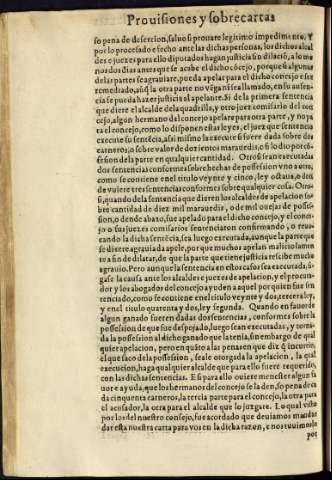 Prouisiones y sobrecartas
so pena de desercion, saluo si prouare legitimo impedimento. Y
por lo processado e fecho ante las dichas personas, los dichos alcal
des e juezes para ello diputados hagan justicia sin dilació, a lo me
nos dos dias antes que se acabe el dicho cócejo, porque si alguna
de las partes se agrauiare, pueda apelar para el dicho concejo e ser
remediado, la otra parte no végan sea llamado, en su ausen
cia se pueda hazer justicia al apelante. Si de la primera sentencia
que diere el alcalde de la quadrilla, y otro juez comissario del con
cejo, algun hermano del concejo apelare para otra parte, y no pa
ra el concejo, como lo disponen estas leyes, el juez que sentencia
execute su sentécia, assi mismo la execute si fuere dada sobre dos
carneros, o sobre valor de dozientos marauedis, o si lo dio por có
fession de la parte en qualquier cantidad. Otrosi sean executadas
dos sentencias conformes sobre hechas de possession vno a otro,
como se contiene en el titulo veynte y cinco, ley octaua, o don
de vuiere tres sentencias conformes sobre qualquier cosa. Otro-
si, quando de la sentencia que dieren los alcaldes de apelacion so
bre cantidad de diez mil marauedis, o de mil ouejas de posses-
sion, o dende abaxo, fue apelado para el dicho concejo, y el conce
jo o sus juezes comissarios sentenciaron confirmando, o reuo
cando la dicha sentécia, sea luego executada, aunque la parte que
se dixere agrauiada apele, por que muchos apelan maliciosamen
te a fin de dilatar, de que la parte que tiene justicia recibe mucho
agrauio. Pero aunque la sentencia en estos casos sea executada, si-
gase la causa ante los alcaldes e juezes de apelacion, y el procura-
dor y los abogados del concejo ayuden a aquel por quien fue sen
tenciado, como se contiene en el titulo veynte y dos, tercera ley,
y en el titulo quarenta y dos, ley segunda. Quando en fauor de
algun ganado fueren dadas dos sentencias, conformes sobre la
possession de que fue despojado, luego sean executadas, y torna-
da la possession al dicho ganado que la tenia, sin embargo de qual
quier apelacion, pero en quáto a las penas en que diz incurrio,
el que saco de la possession, seale otorgada la apelacion, la qual
execucion, haga qualquier alcalde que para ello fuere requerido,
con las dichas sentencias. E si para ello ouiere menester algun fa
uor e ayuda, que los hermanos del concejo se la den, so pena de ca
da cinquenta carneros, la tercia parte para el concejo, la otra para
el acusador, la otra para el alcalde que lo juzgare. Lo qual visto
por los del nuestro consejo, fue acordado que deuiamos mandar
dar esta nuestra carta para vos en la dicha razon, e nos tuuimoslo
por